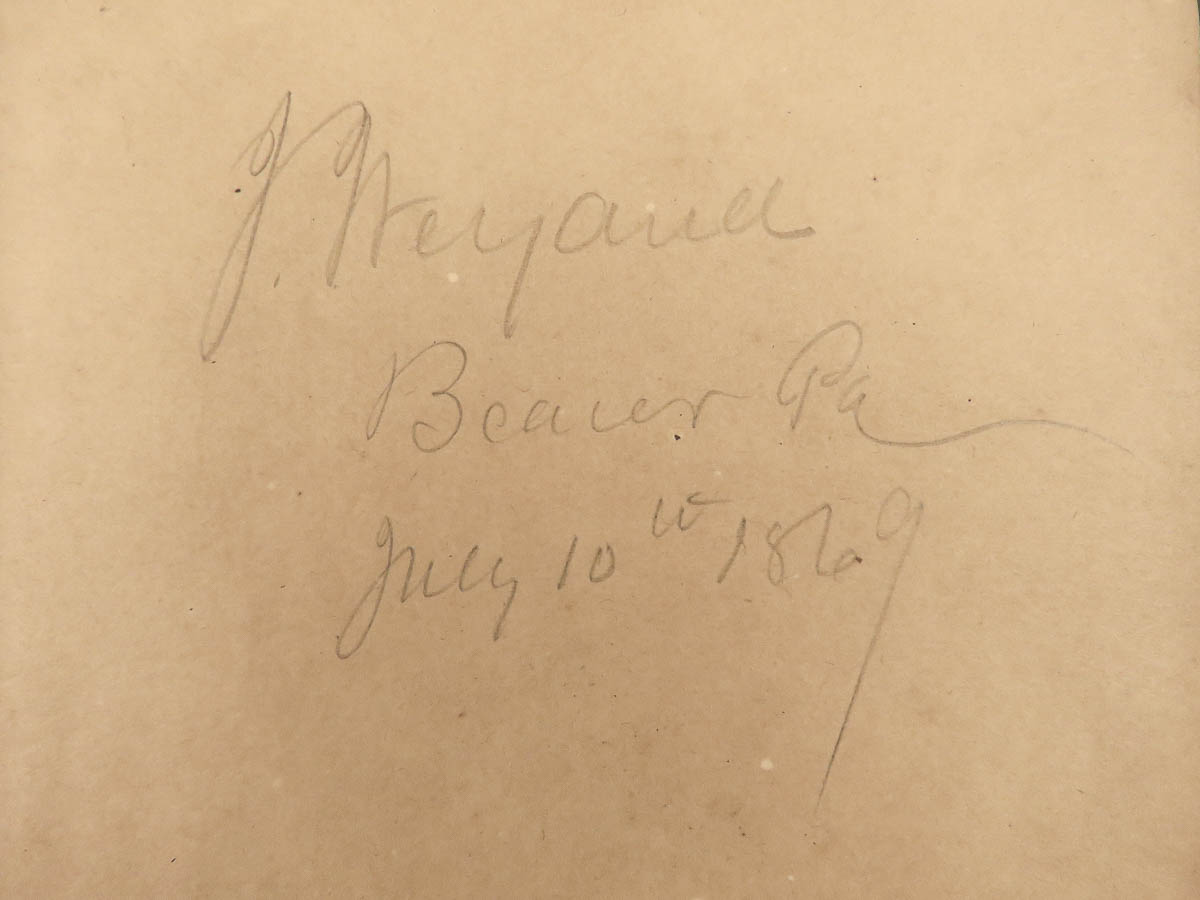 J. Weyand
Beaver Pa
July 10th 1869